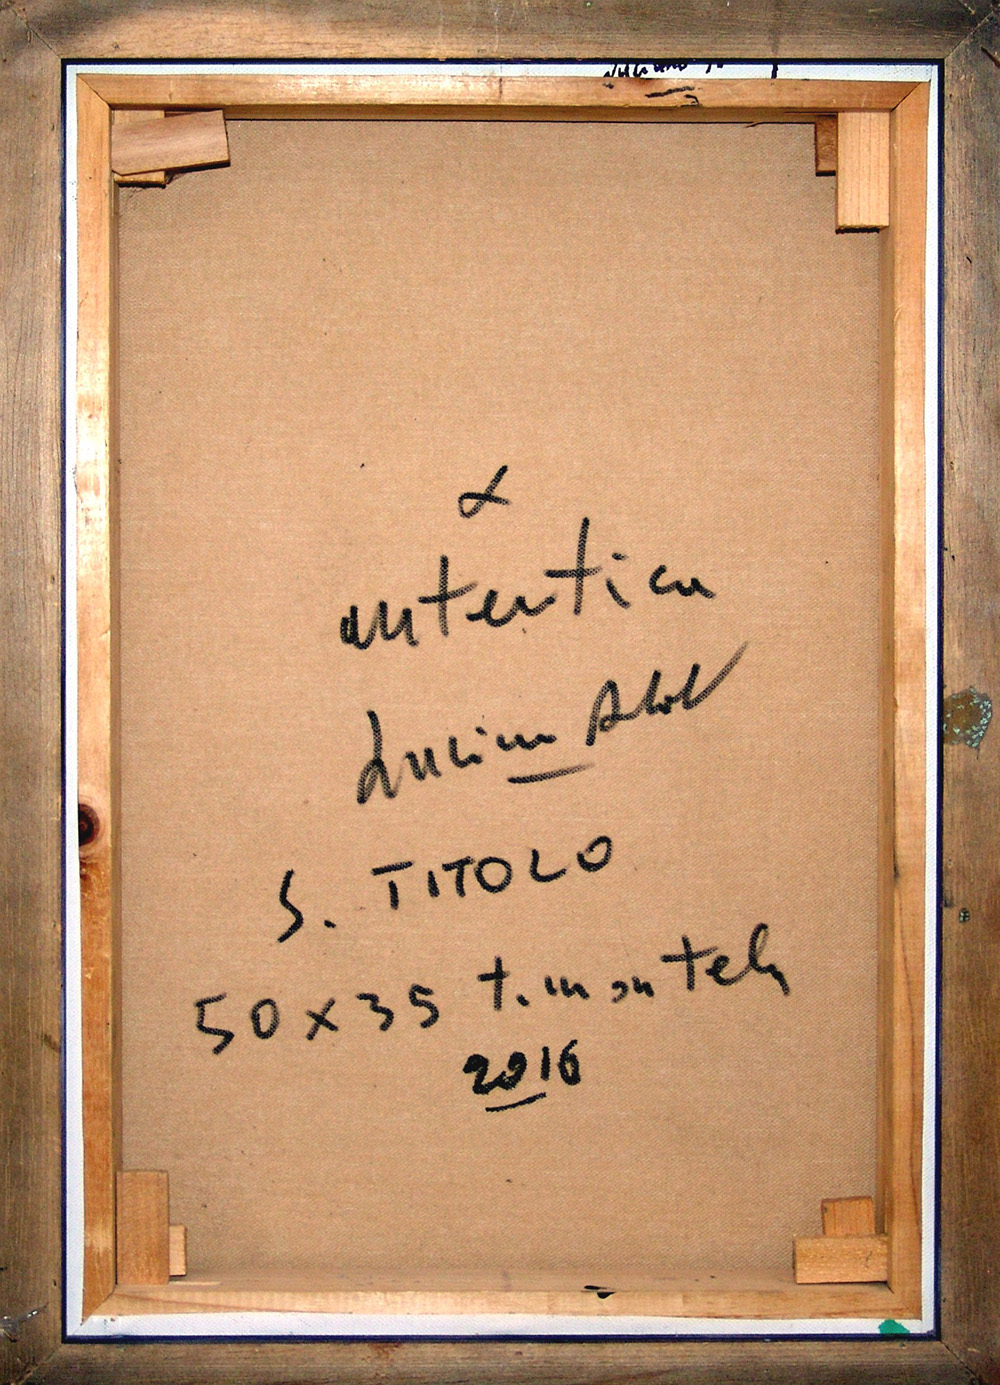 α
autentica
Lucian
S. TITOLO
50x35 t.m. su tela
2016